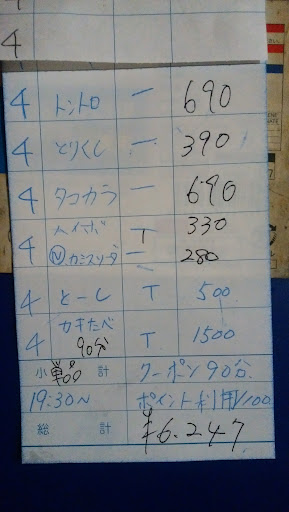 4
4 トントロ 一 690
4 とりくし 一 390
4 タコカラ 一 690
4 ハイボ T 330
Ⓝカシスソーダ 一 280
4 とーし T 500
4 カキたべ 90分 T 1500
小 計 クーポン90分
19:30〜 ポイント利用¥100
総 計 ¥6.247